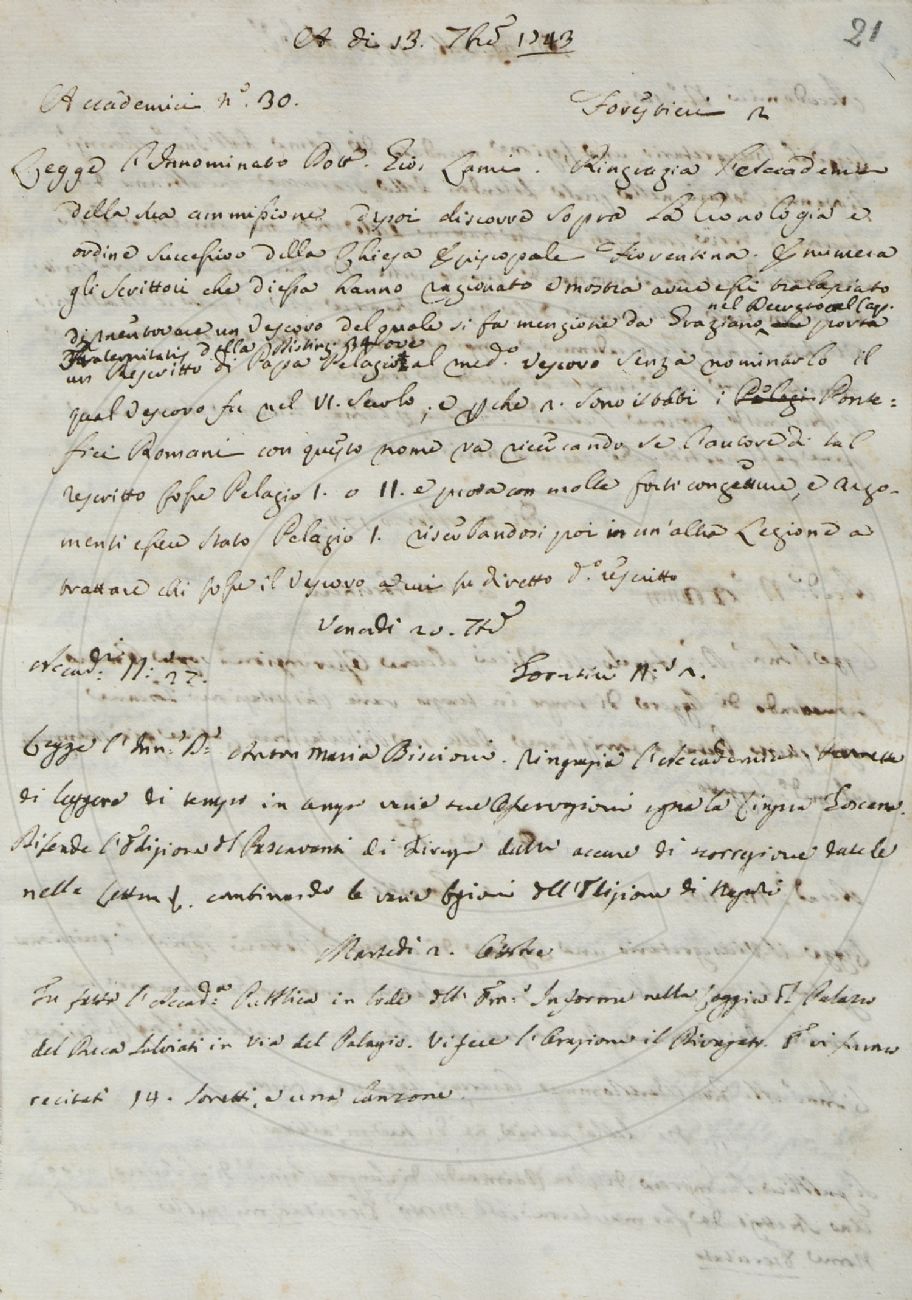 21
A di 13. 7bre 1743
Accademici n.º 30. Forestieri 2
Legge l'Innominato Dott.r Gio. Lami. Ringrazia l'Accademia
della sua ammissione dipoi discorre sopra la Cronologia e
ordine successivo della Chiesa Episcopale Fiorentina. Enumera
gli Scrittori che di essa hanno ragionato e mostra avere essi tralasciato
di mentovare un Vescovo del quale si fa menzione da Graziano nel Decreto al Cap.
Fraternitatis della Distinz. 34 ove porta
un Rescritto di Papa Pelagio al med.º Vescovo senza nominarlo il
qual Vescovo fu nel VI. Secolo, e perche 2. sono stati i Pelagi Ponte=
fici Romani con questo nome va ricercando se l'autore di tal
rescritto fosse Pelagio I. o II. e prova con molte forti congetture, e argo-
menti essere stato Pelagio I. riserbandosi poi in un'altra Lezione a
trattare chi fosse il Vescovo a cui fu diretto d.º rescritto
Venerdi 20. 7bre
Accad.ci N.º 27. Forestieri N.º 2.
Legge l'Inn.º D.r Anton Maria Biscioni. Ringrazia l'Accademia
di leggere di tempo in tempo varie sue Osservazioni sopra la Lingua Toscana.
Difende l'Edizione del Passavanti di Firenze dalle accuse di scorrezione datele
nella combinando le varie lezioni dell'Edizione di Napoli
Martedi 2. Ottobre
Fu fatta l'Accad.a Pubblica in lode dell' nella Loggia del Palazzo
del Duca Salviati in Via del Palagio. Vi fece l'Orazione il vi furno
recitati 14. Sonetti, e una Canzone.